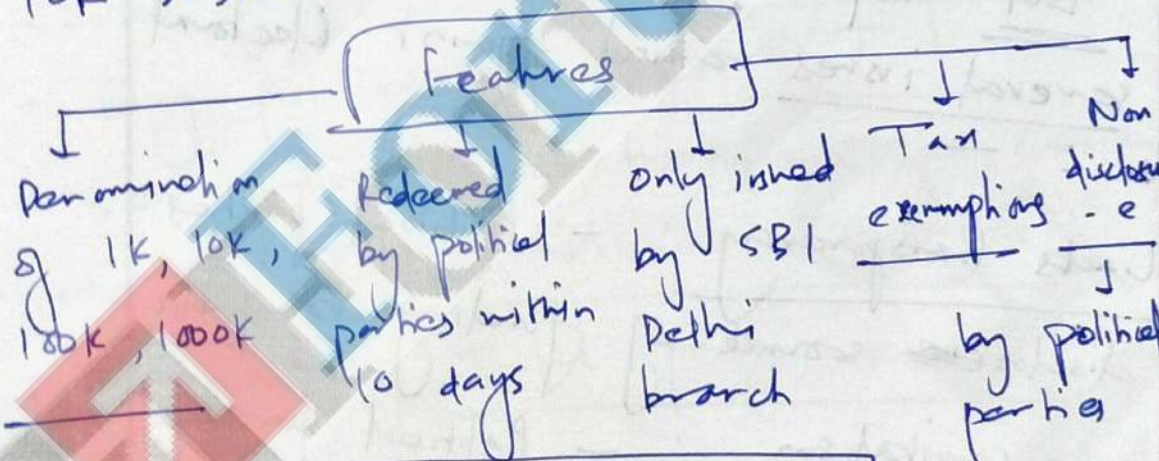 Features
Denomination
of 1K, 10K,
100K, 1000K
Redeemed
by political
parties within
10 days
Only issued
by SBI
Delhi
branch
Tax
exemptions
Non
disclosu
- e
by political
parties